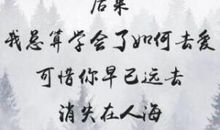 后来
我总算学会了如何去爱
可惜你早已远去
消失在人海